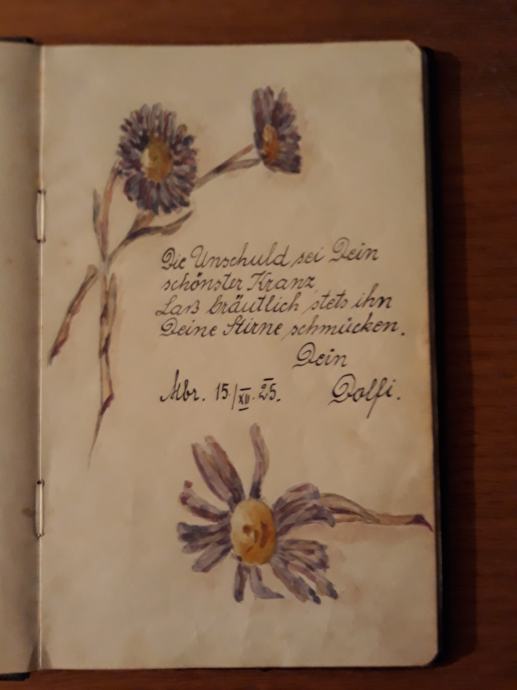 Die Unschuld sei Dein
schönster Kranz
Laß bräutlich stets ihn
Deine Stirne schmücken.
Dein
Mbr. 15/XII. 25. Dolfi.